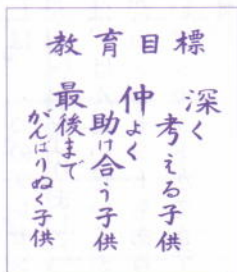 教育目標
深く
考える子供
仲よく
助け合う子供
最後まで
がんばりぬく子供